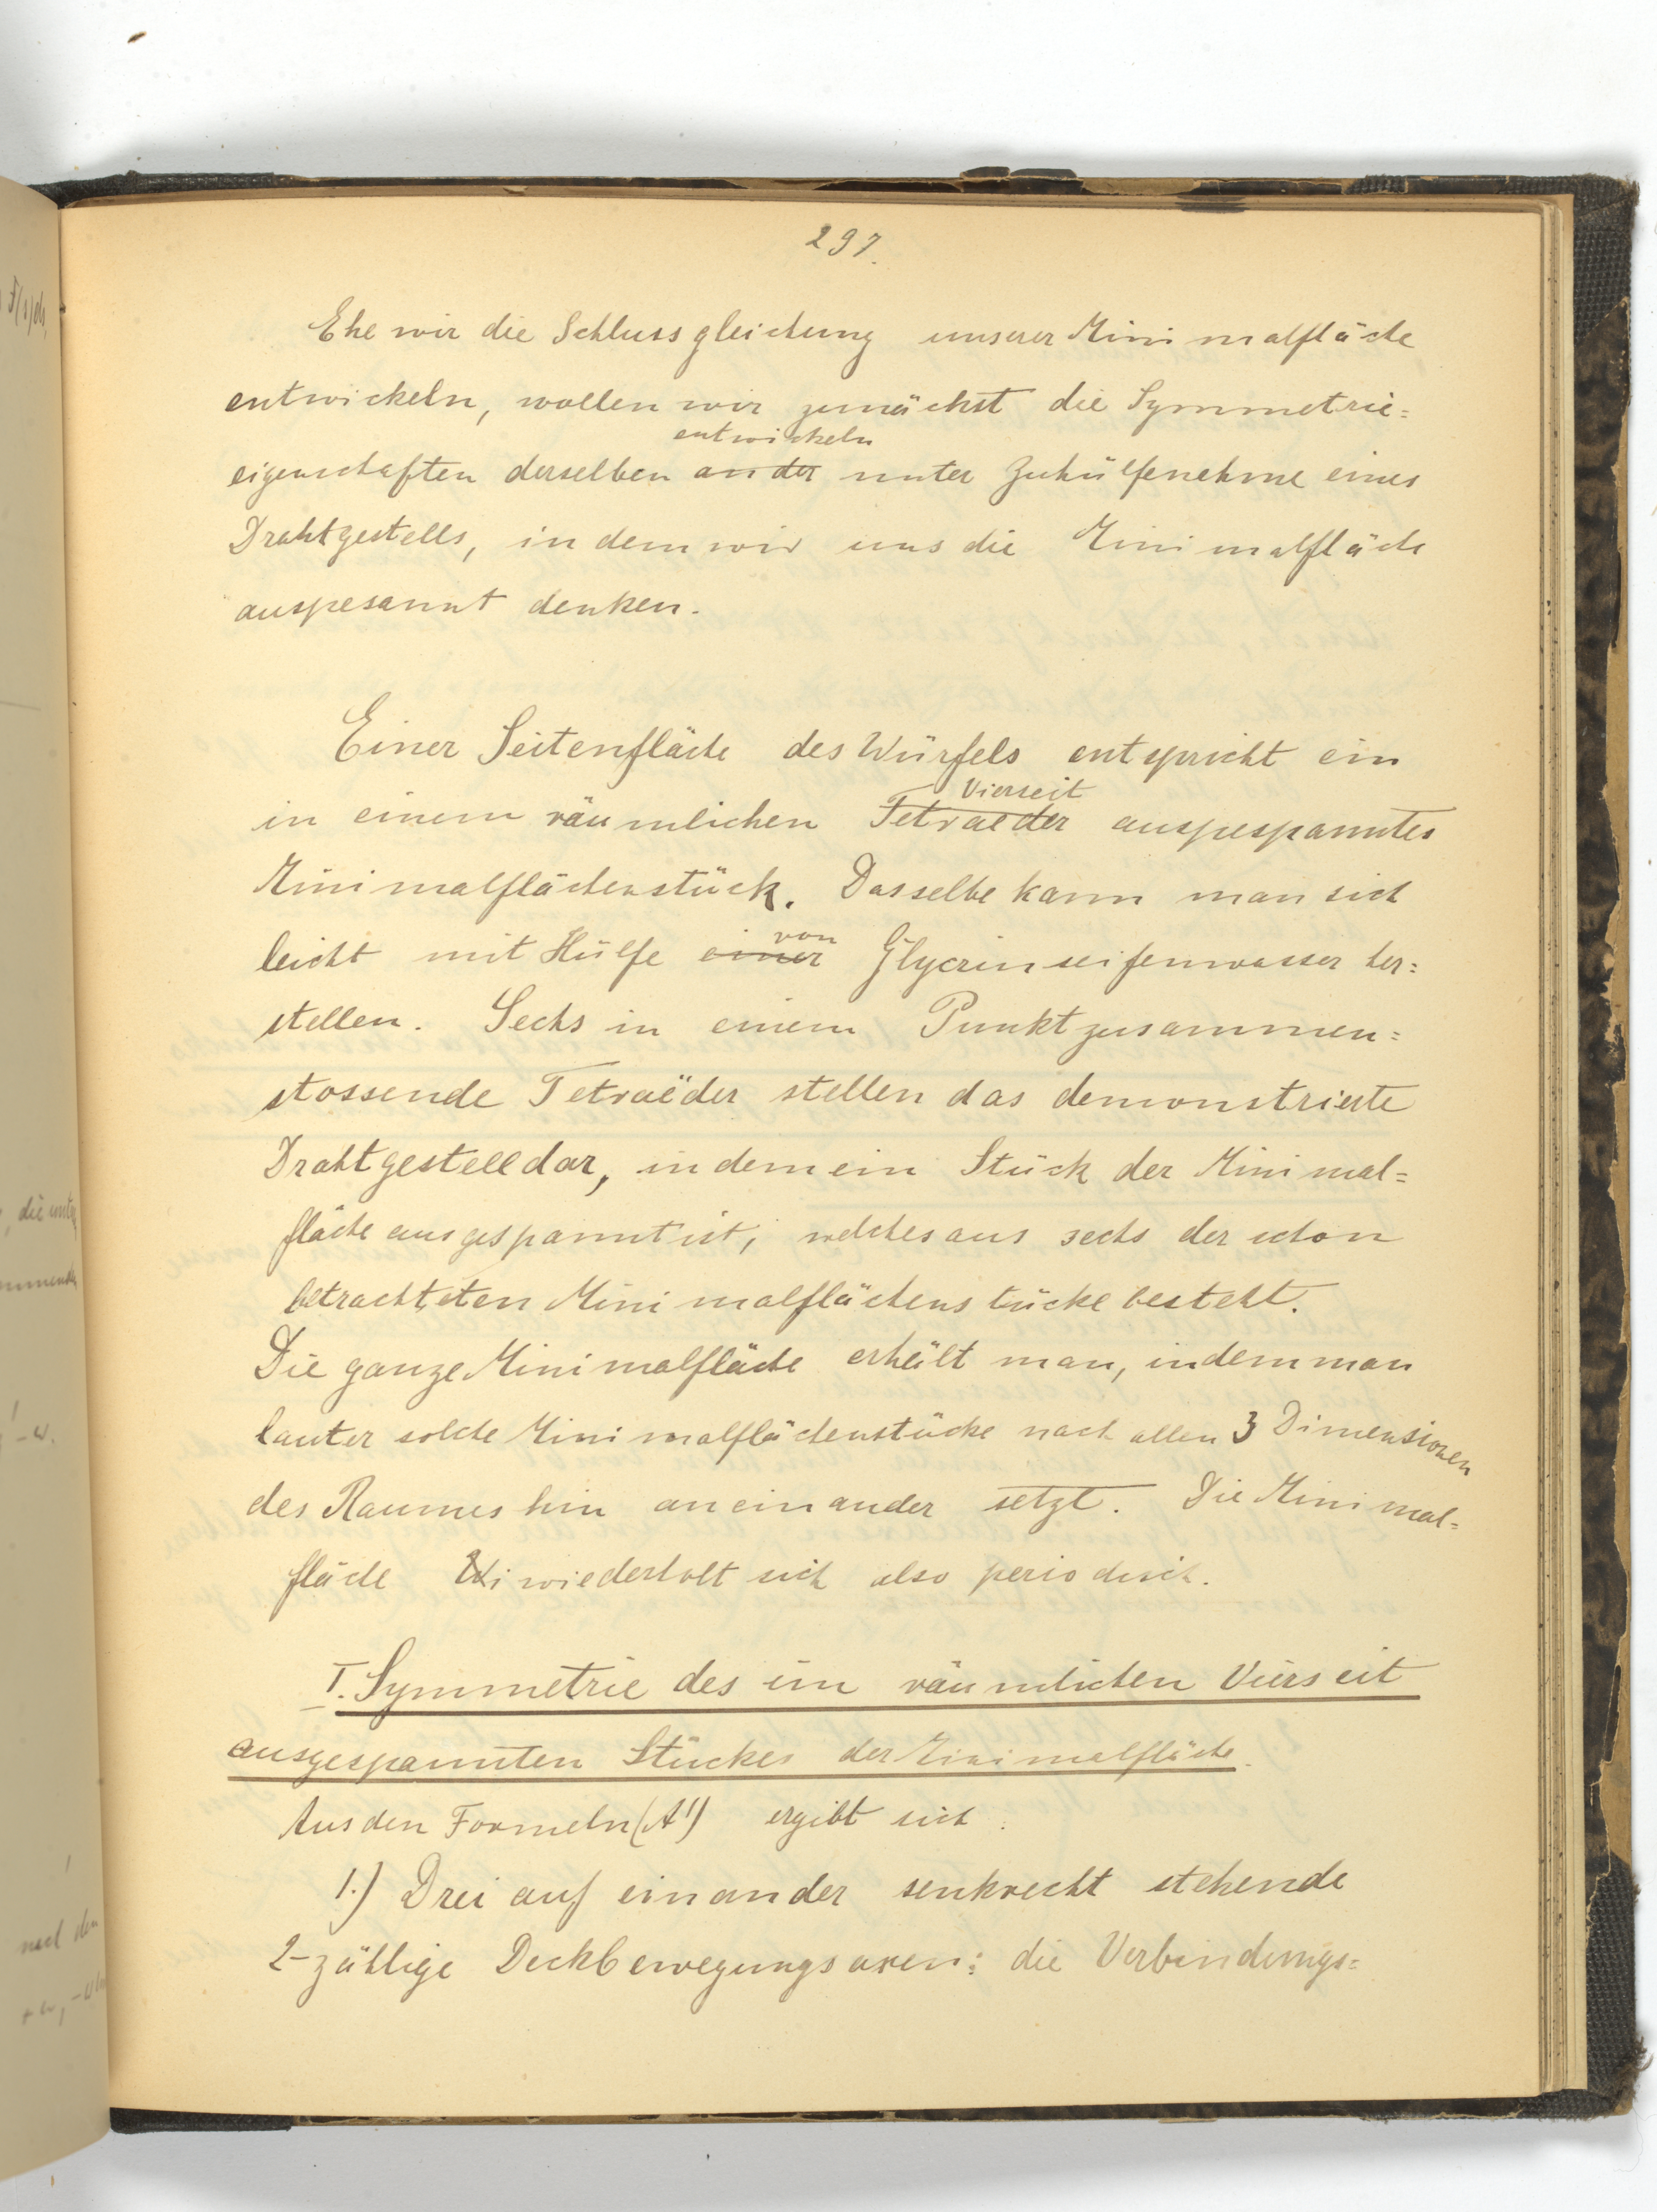 297.
Ehe wir die Schlussgleichung unserer Minimalfläche
entwickeln, wollen wir zunächst die Symmetrie=
entwickeln
eigenschaften derselben an der unter Zuhülfenahme eines
Drahtgestells, in dem wir uns die Minimalfläche
ausgesannt denken.
Einer Seitenfläche des Würfels entspricht ein
Vierseit
in einem räumlichen Tetraeder ausgespanntes
Minimalflächenstück. Dasselbe kann man sich
von
leicht mit Hülfe einer Glycerinseifenwasser her=
stellen. Sechs in einem Punkt zusammen=
stossende Tetraëder stellen das demonstrierte
Drahtgestell dar, in dem ein Stück der Minimal=
fläche ausgespannt ist, welches aus sechs der schon
betrachteten Minimalflächenstücke besteht.
Die ganze Minimalfläche erhält man, indem man
lauter solche Minimalflächenstücke nach allen 3 Dimensionen
des Raumes hin aneinander setzt. Die Minimal=
fläche wiederholt sich also periodisch.
I. Symmetrie des im räumlichen Vierseit
ausgespannten Stückes der Minimalfläche.
Aus den Formeln (A') ergibt sich:
1.) Drei auf einander senkrecht stehende
2-zählige Deckbewegungsaxen: die Verbindungs=